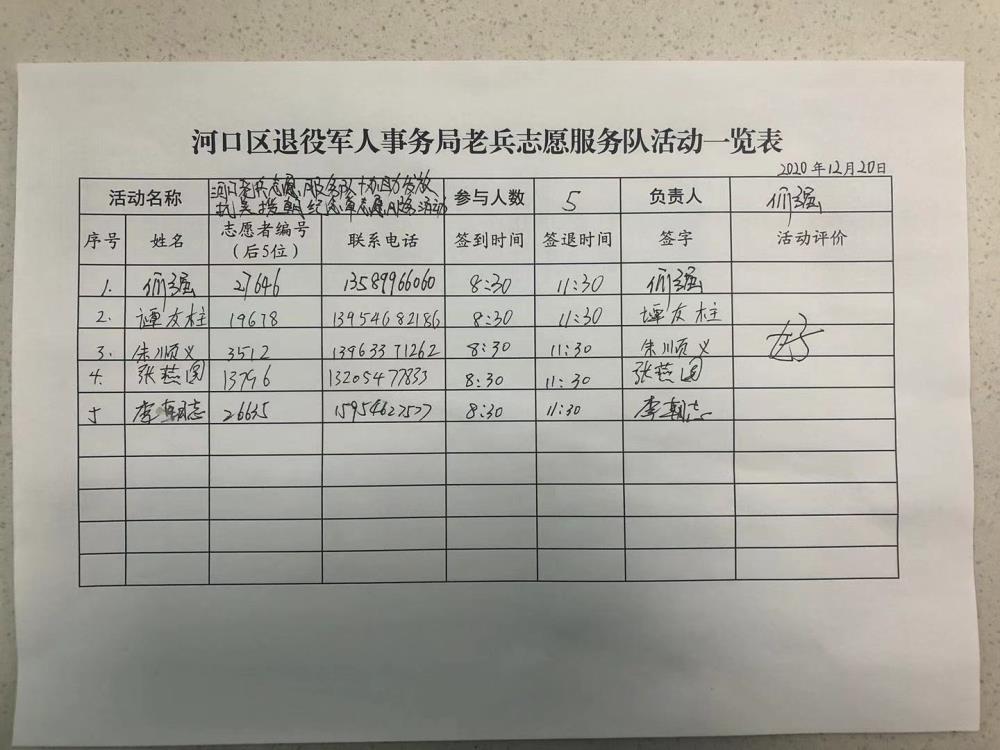 河口区退役军人事务局老兵志愿服务队活动一览表
2020年12月20日
活动名称 河口老兵志愿服务队协助发放 抗美援朝纪念章志愿服务活动 参与人数 5 负责人 强
序号 姓名 志愿者编号（后5位） 联系电话 签到时间 签退时间 签字 活动评价
1. 强 27646 13589966060 8:30 11:30 强
2. 谭友柱 19678 13954682186 8:30 11:30 谭友柱 好
3. 朱顺义 3512 13963371262 8:30 11:30 朱顺义
4. 张燕 13796 13205477833 8:30 11:30 张燕
5 李朝志 26635 15954627577 8:30 11:30 李朝志